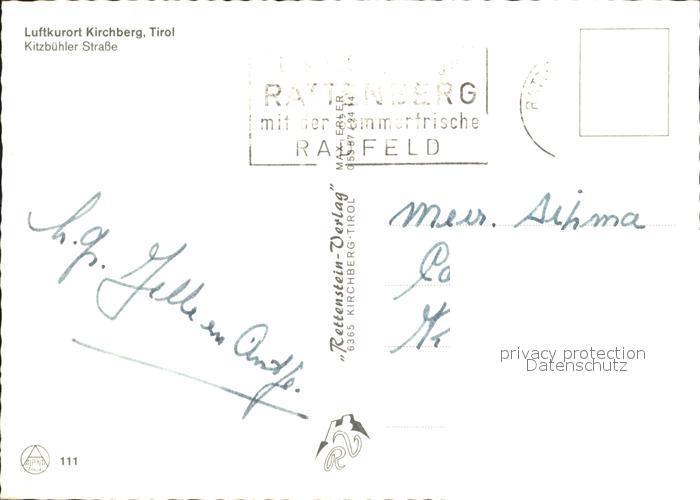 Luftkurort Kirchberg, Tirol
Kitzbühler Straße
RATTENBERG
mit der Sommerfrische
RADFELD
MAX ERLER
"Rettenstein-Verlag"
6365 KIRCHBERG-TIROL
h.g. Jelle en Antje.
Mevr. Sipma
privacy protection
Datenschutz
RV
111